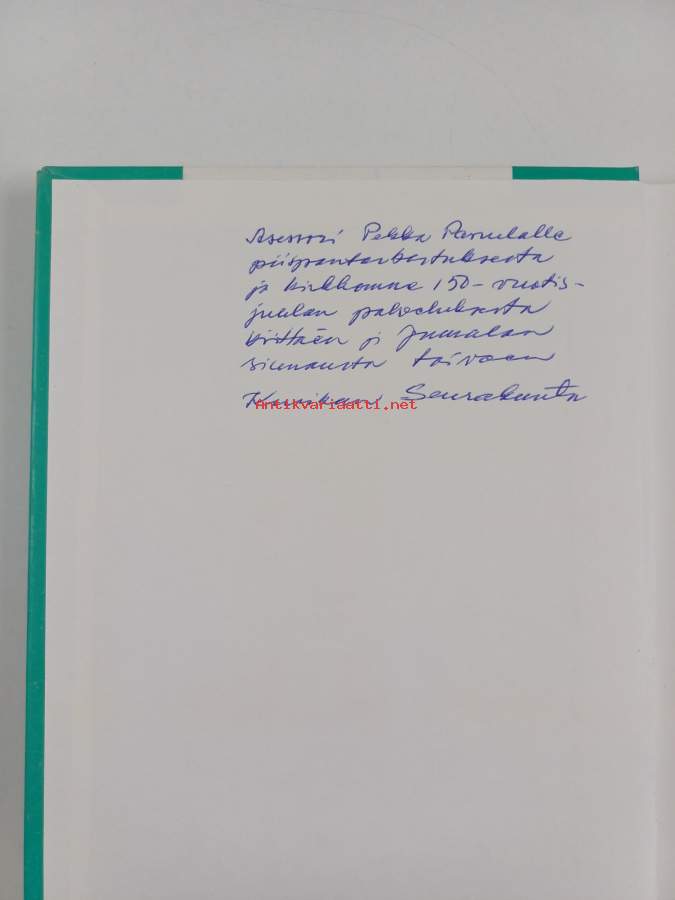 Asessori Pekka Parvelalle
piispantarkastuksesta
ja kirkkomme 150-vuotis-
juhlan palveluksesta
kiittäen ja Jumalan
siunausta toivoen
Seurakunta
Antikvariaatti.net